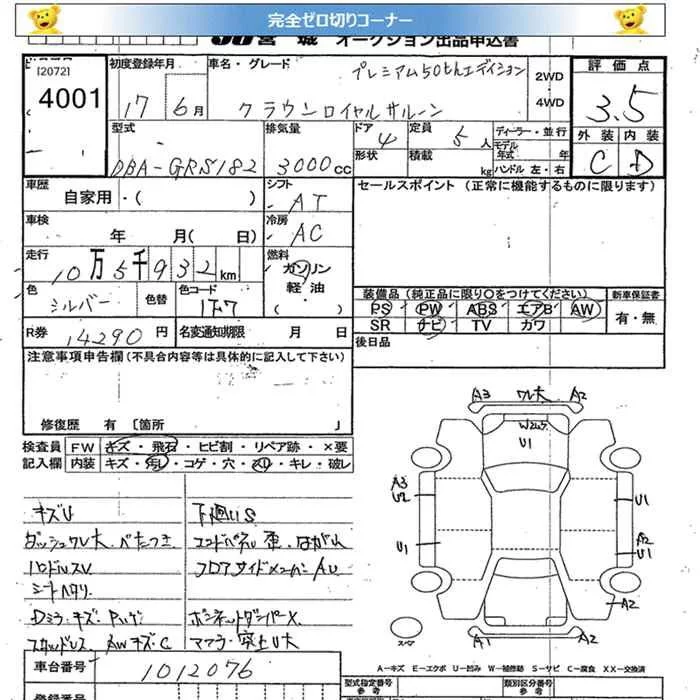 完全ゼロ切りコーナー
宮城 オークション出品申込書
[2072]
4001
初度登録年月
17年6月
車名・グレード
プレミアム50thエディション
クラウンロイヤルサルーン
2WD
・
4WD
評価点
3.5
外装 内装
C D
型式
DBA-GRS182
排気量
3000cc
ドア
4
形状
定員
5人
積載
kg
ディーラー・並行
モデル年式 年
ハンドル 左・右
車歴
自家用・( )
シフト
AT
セールスポイント (正常に機能するものに限ります)
車検
年 月( 日)
冷房
AC
走行
10万5千932km
燃料
ガソリン
軽油
( )
色
シルバー
色替
色コード
1F7
装備品(純正品に限り○をつけてください)
PS PW ABS エアB AW
SR ナビ TV カワ
新車保証書
有・無
R券
14290円
名変通知期限 月 日
後日品
注意事項申告欄(不具合内容等は具体的に記入して下さい)
修復歴 有 〔箇所 〕
検査員記入欄
FW キズ・飛石・ヒビ割・リペア跡・×要
内装 キズ・汚レ・コゲ・穴・スリ・キレ・破レ
キズU
ダッシュワレ大、べたつき
ハンドルスレ
シートヘタリ
Dミラーキズ・Pハゲ
スタッドレス、AWキズ・C
下廻りS
エンドパネル歪、はがれ
フロアサイドメンバーAU
ボンネットダンパーX
マフラー突上U大
A3 ワレ大 A2
U1
A3
U2
U1
U1
A2
U1
A2
A1 A2
スペア
A－キズ E－エクボ U－凹み W－補修跡 S－サビ C－腐食 XX－交換済
車台番号
1012076
型式指定番号
参考
類別区分番号
参考
登録番号